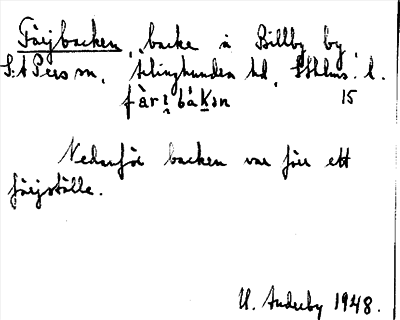 Färjbacken, backe i Billby by,
S:t Pers sn, Selinghundra hd, Sthlms. l.
fàrịbàkən 15
Nedanför backen var förr ett
färjställe.
U. Anderby 1948.